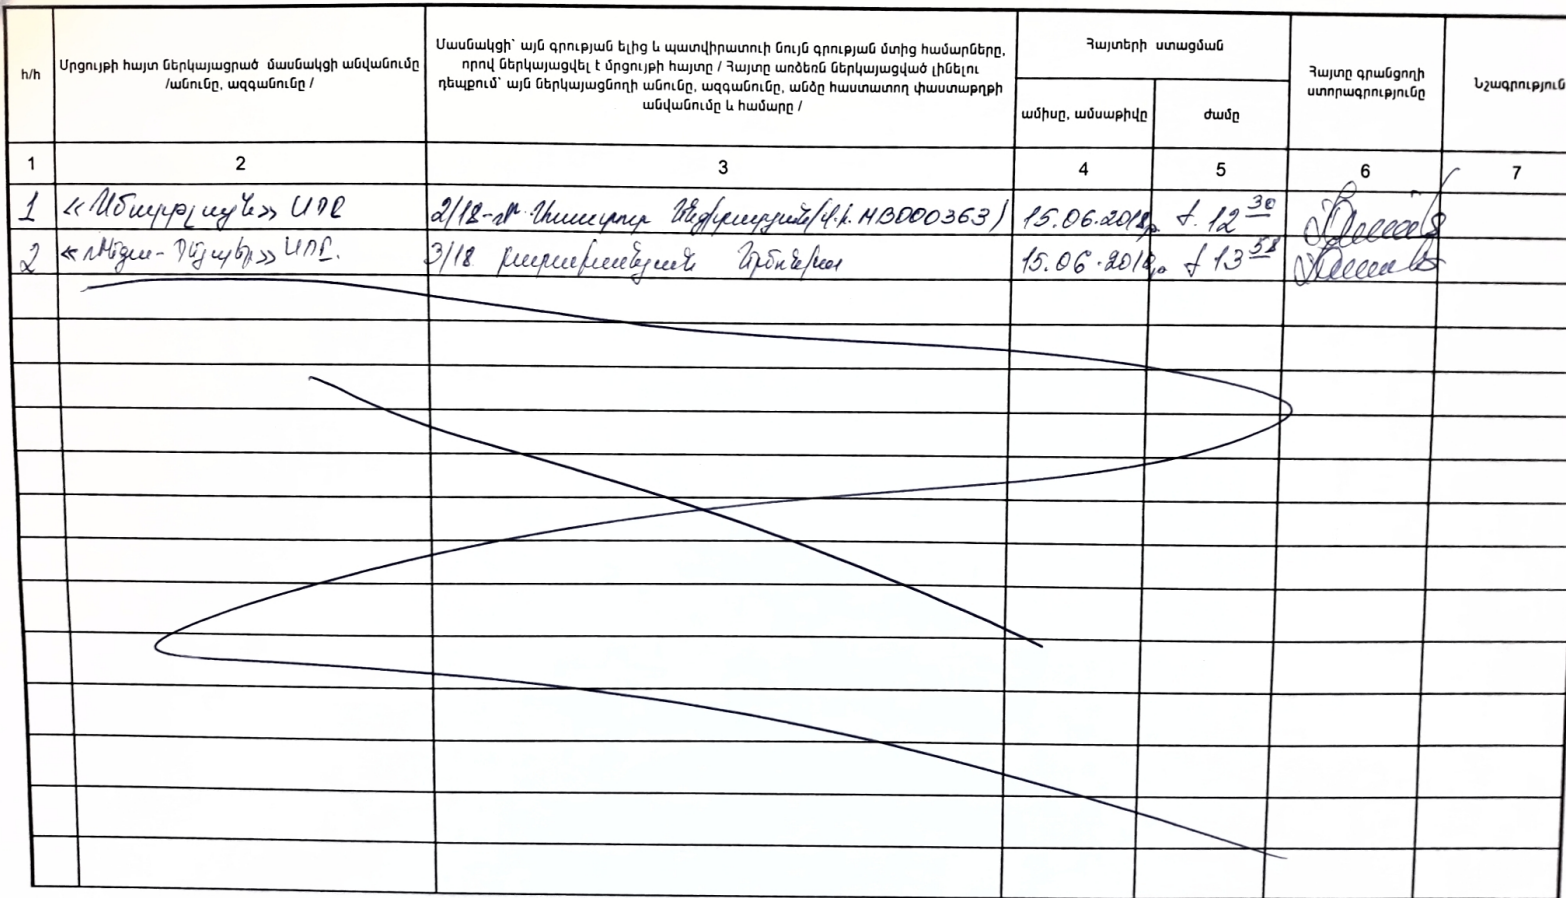 հ/հ
Մրցույթի հայտ ներկայացրած մասնակցի անվանումը
/անունը, ազգանունը /
Մասնակցի` այն գրության ելից և պատվիրատուի նույն գրության մտից համարները,
որով ներկայացվել է մրցույթի հայտը / Հայտը առձեռն ներկայացված լինելու
դեպքում` այն ներկայացնողի անունը, ազգանունը, անձը հաստատող փաստաթղթի
անվանումը և համարը /
Հայտերի ստացման
ամիսը, ամսաթիվը
ժամը
Հայտը գրանցողի
ստորագրությունը
Նշագրություն
1 2 3 4 5 6 7
1 ՍՊԸ 2/18- HB000363) 15.06.2018թ. ժ. 12 30
2 ՍՊԸ. 3/18 15.06.2018թ. ժ 13 58